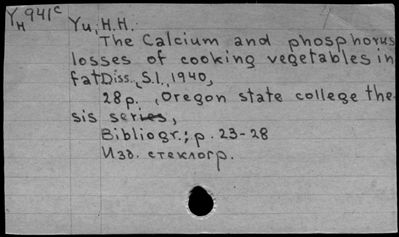 Yн 941c
Yu, H.H.
The Calcium and phosphorus
losses of cooking vegetables in
fat Diss., S.l., 1940,
28p., Oregon state college the-
sis series,
Bibliogr.; p. 23-28
Изд. стеклогр.